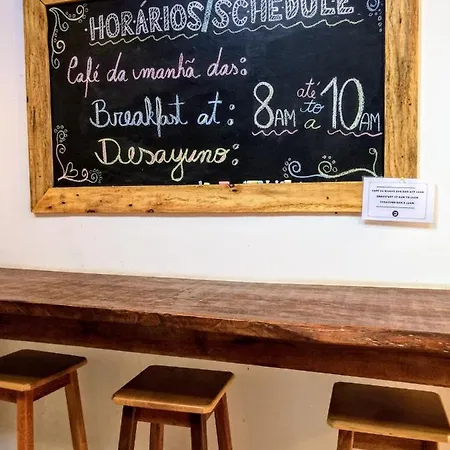 HORÁRIOS/SCHEDULE
Café da manhã das:
Breakfast at:
Desayuno:
8AM até to a 10AM